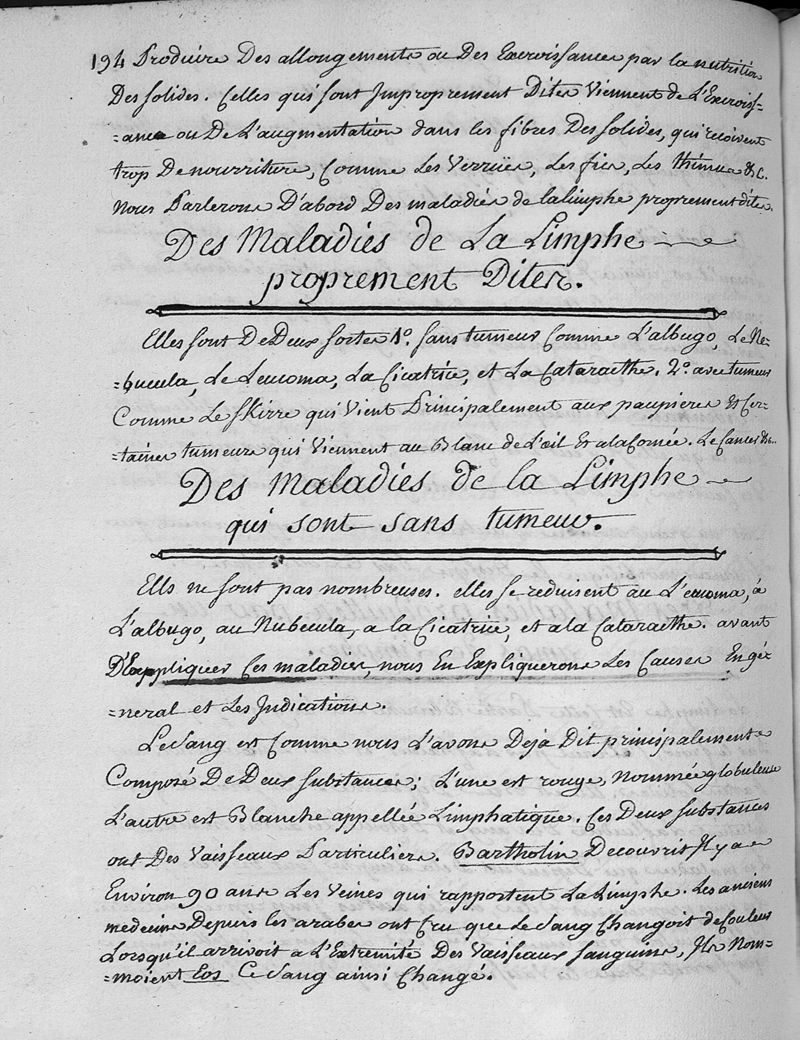 194 Produire Des allongements ou Des Excroissances par la nutrition
Des solides. Celles qui sont Improprement Dites Viennent de L'Excroiss-
=ance ou De L'augmentation dans les fibres Des solides, qui recoivent
trop De nourriture, Comme Les Verrües, Les fics, Les thimus &c.
Nous Parlerons D'abord Des maladies de la limphe proprement dites.
Des Maladies de La Limphe
proprement Dites.
Elles sont De Deux sortes 1º. sans tumeur Comme L'albugo, Le Ne-
=bucula, Le Leucoma, La Cicatrice, et La Cataracthe. 2º. avec tumeur
Comme Le skirre qui Vient Principalement aux paupieres Et Cer-
=taines tumeurs qui Viennent au Blanc de L'oeil Et a la Cornée. Le Cancer &c.
Des Maladies de la Limphe
qui sont sans tumeur.
Ells ne sont pas nombreuses. elles se reduisent au Leucoma, à
L'albugo, au Nubecula, a la Cicatrice, et a la Cataracthe. avant
D'Expliquer Ces maladies, nous En Expliquerons Les Causes En gé=
=neral et Les Indications.
Le Sang est Comme nous L'avons Deja Dit principalement
Composé De Deux substances; L'une est rouge, nommée globuleuse
L'autre est Blanche appellée Limphatique. Ces Deux substances
ont Des Vaisseaux Particuliers. Bartholin Decouvrit Il y a
Environ 90 ans Les Veines qui rapportent La Limphe. Les anciens
medecins Depuis les arabes ont Cru que Le Sang Changoit de Couleur
Lorsqu'il arrivoit a L'Extremité Des Vaisseaux sanguins, Ils Nom-
=moient Eos Ce Sang ainsi Changé.